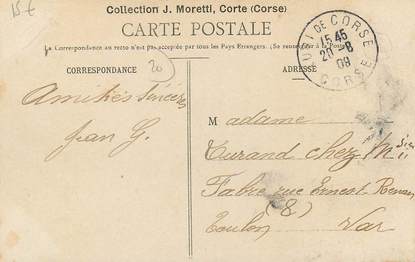 15€
Collection J. Moretti, Corte (Corse)
CARTE POSTALE
La Correspondance au recto n'est pas acceptée par tous les Pays Étrangers. (Se renseigner à la Poste)
CORRESPONDANCE
20
ADRESSE
DE CORSE
15 45
20 -8
09
CORSE
Amitiés sincères
Jean G.
Madame
Durand chez M
Fabre rue Ernest Renan
(8)
Toulon Var